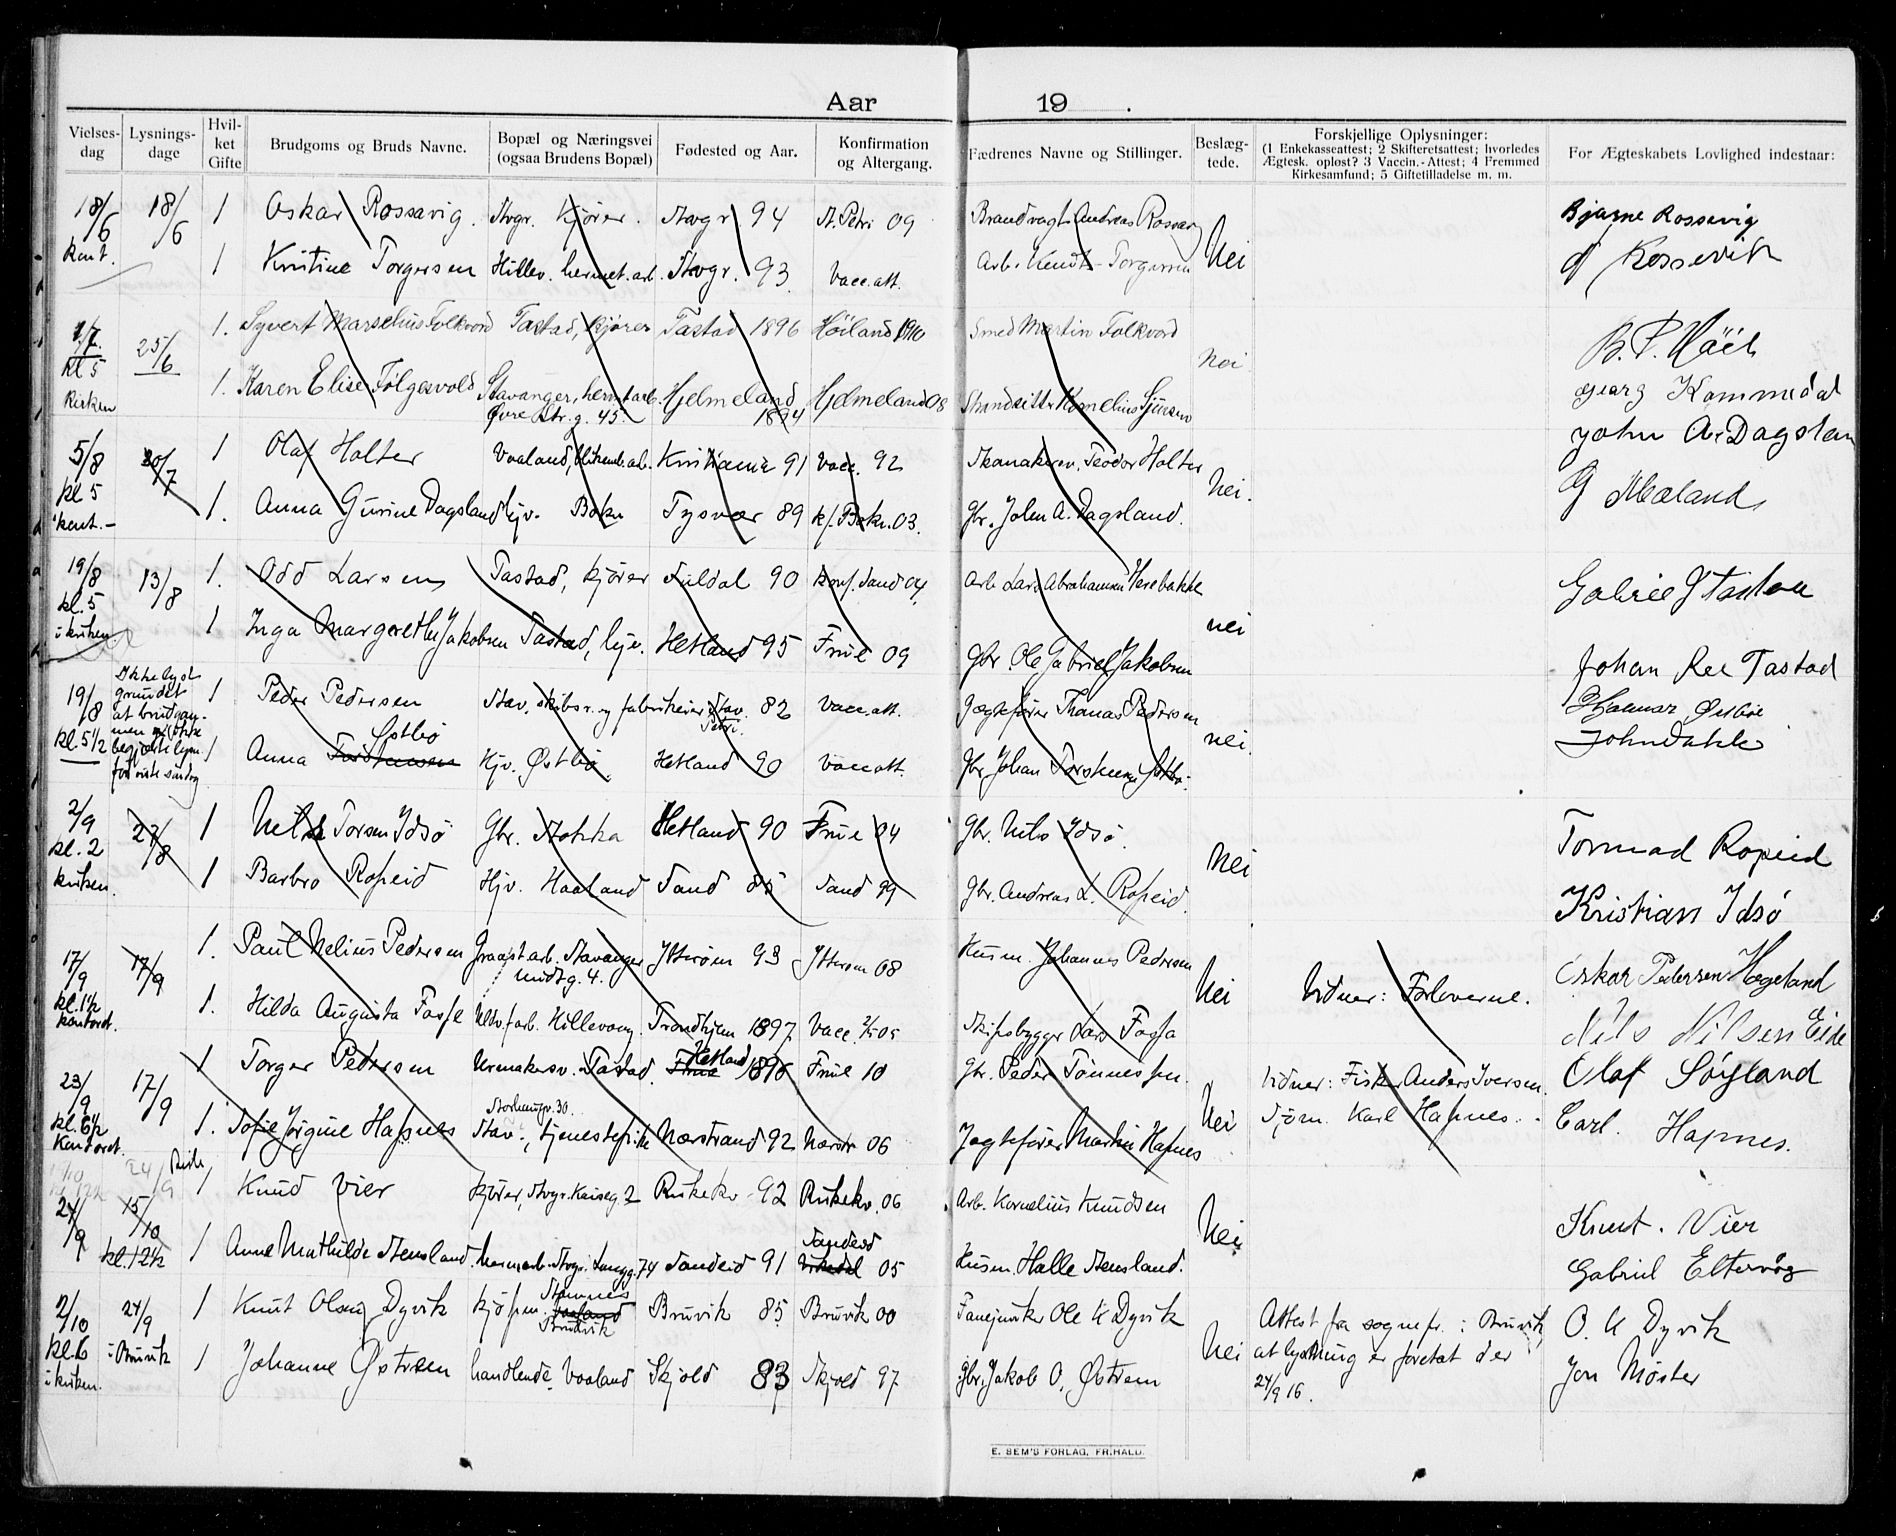 Aar 19 .
Vielses-dag
Lysnings-dage
Hvil-ket Gifte
Brudgoms og Bruds Navne.
Bopæl og Næringsvei (ogsaa Brudens Bopæl)
Fødested og Aar.
Konfirmation og Altergang.
Fædrenes Navne og Stillinger.
Beslæg-tede.
Forskjellige Oplysninger:
(1 Enkekasseattest; 2 Skifteretsattest; hvorledes
Ægtesk. opløst? 3 Vaccin.-Attest; 4 Fremmed
Kirkesamfund; 5 Giftetilladelse m. m.
For Ægteskabets Lovlighed indestaar:
18/6 18/6 1 Oskar Rossavig. Stvgr. Kjører. Stavgr 94 St. Petri 09 Brandvagt Andreas Rossav Bjarne Rossevig
kont. 1 Kristine Torgersen Hillev. hermet.arb. Stavgr. 93 Vacc.att. Arb. Knudt Torgersen Nei Rossevik
1/7 25/6 1. Syvert Marselius Folkvord Tastad, kjører Tastad 1896 Høiland 1910 Smed Martin Folkvord
kl 5 1. Karen Elise Følgesvold Stavanger, hermt.arb. Hjelmeland 1894 Hjelmeland 08 Strandsitter Kornelius Sjursen nei
Kirken Øvre Str.g. 45. Georg Kommedal
5/8 30/7 1 Olaf Holter Vaaland, Kristiania 91 Vacc. 92 Teodor Holter John A. Dagslan
kl 5 kont. 1. Anna Gurine Dagsland hjv. Bokn Tysvær 89 kf. Bokn. 03. Gbr. John A. Dagsland. Nei. G Mæland
19/8 13/8 1. Odd Larsen Tastad, kjører Suldal 90 konf. Sand 04. Arb. Lars Abrahamsen Herebakke Gabriel J Tastad
kl. 5 i kirken 1 Inga Margrethe Jakobsen Tastad, hjv. Hetland 95 Frue 09 Gbr. Ole Gabriel Jakobsen nei Johan Ree Tastad
19/8 Ikke lyst grundet at brudgom-men ikke begjærte lysn. 1 Peder Pedersen Stav. skibsr. og fabrikeier Stav. Petri. 82 Vacc.att. Jægtefører Thomas Pedersen Hjalmar Østbø
kl. 5½ 1 Anna Torstensen Østbø Hjv. Østbø Hetland 90 Vacc att. Gbr Johan Torstensen Østbø. nei. John Dahle
2/9 27/8 1 Nils Torsen Idsø Gbr. Stokka Hetland 90 Frue 04 Gbr. Nils Idsø. Tormod Ropeid
kl. 2 kirken. 1 Barbro Ropeid Hjv. Haaland Sand 85 Sand 99 Gbr. Andreas L. Ropeid. Nei Kristian Idsø
17/9 17/9 1. Paul Nelius Pedersen Graapt.arb. Stavanger Midtg. 4. Ytterøen 93 Ytterøen 08 Husm. Johannes Pedersen Nei Vidner: Forloverne. Oskar Pedersen Hageland
kl. 1½ kontoret. 1. Hilda Augusta Fosse Uldv.f.arb. Hillevaag. Trondhjem 1897. Vacc. Skipsbygger Lars Fossa Nils Nilsen Eide
23/9 17/9 1 Torger Pedersen Urmakersv. Tastad. Frue Hetland 1896 Frue 10 Gbr. Peder Tønnessen. Vidner: Fisker Anders Iversen. Olaf Søyland
kl. 6½ Kontoret. 1. Sofie Jørgine Hapnes Storhaugv. 30. Stav., tjenestepike Nærstrand 92 Nærstr 06 Jægtefører Martin Hapnes Nei Sjøm. Karl Hapnes. Carl. Hapnes.
24/9 15/10 1 Knud Vier kjører, Stvgr. Kaiseg. 2 Riskekv. 92 Riskekv. 06 Arb. Kornelius Knudsen Knut. Vier
kl. 12½ 1 Anne Mathilde Stensland. herm.arb. Stvgr. Langg. 74 Sandeid 91 Sandeid Vikedal 05 Husm. Halle Stensland. Nei. Gabriel Eltervåg
2/10 24/9 1 Knut Olsen Dyvik Kjøpm. Stamnes Vaaland Bruvik Bruvik 85 Bruvik 00 Fanejunker Ole K Dyvik Attest fra sognepr. i Bruvik O. K Dyvik
kl. 6 i kirken. i Bruvik 1 Johanne Østrem handlende, Vaaland Skjold 83 Skjold 97 Gbr. Jakob O. Østrem Nei at lysning er foretat der 24/9 16. Jon Møster
E. SEM'S FORLAG, FR.HALD.